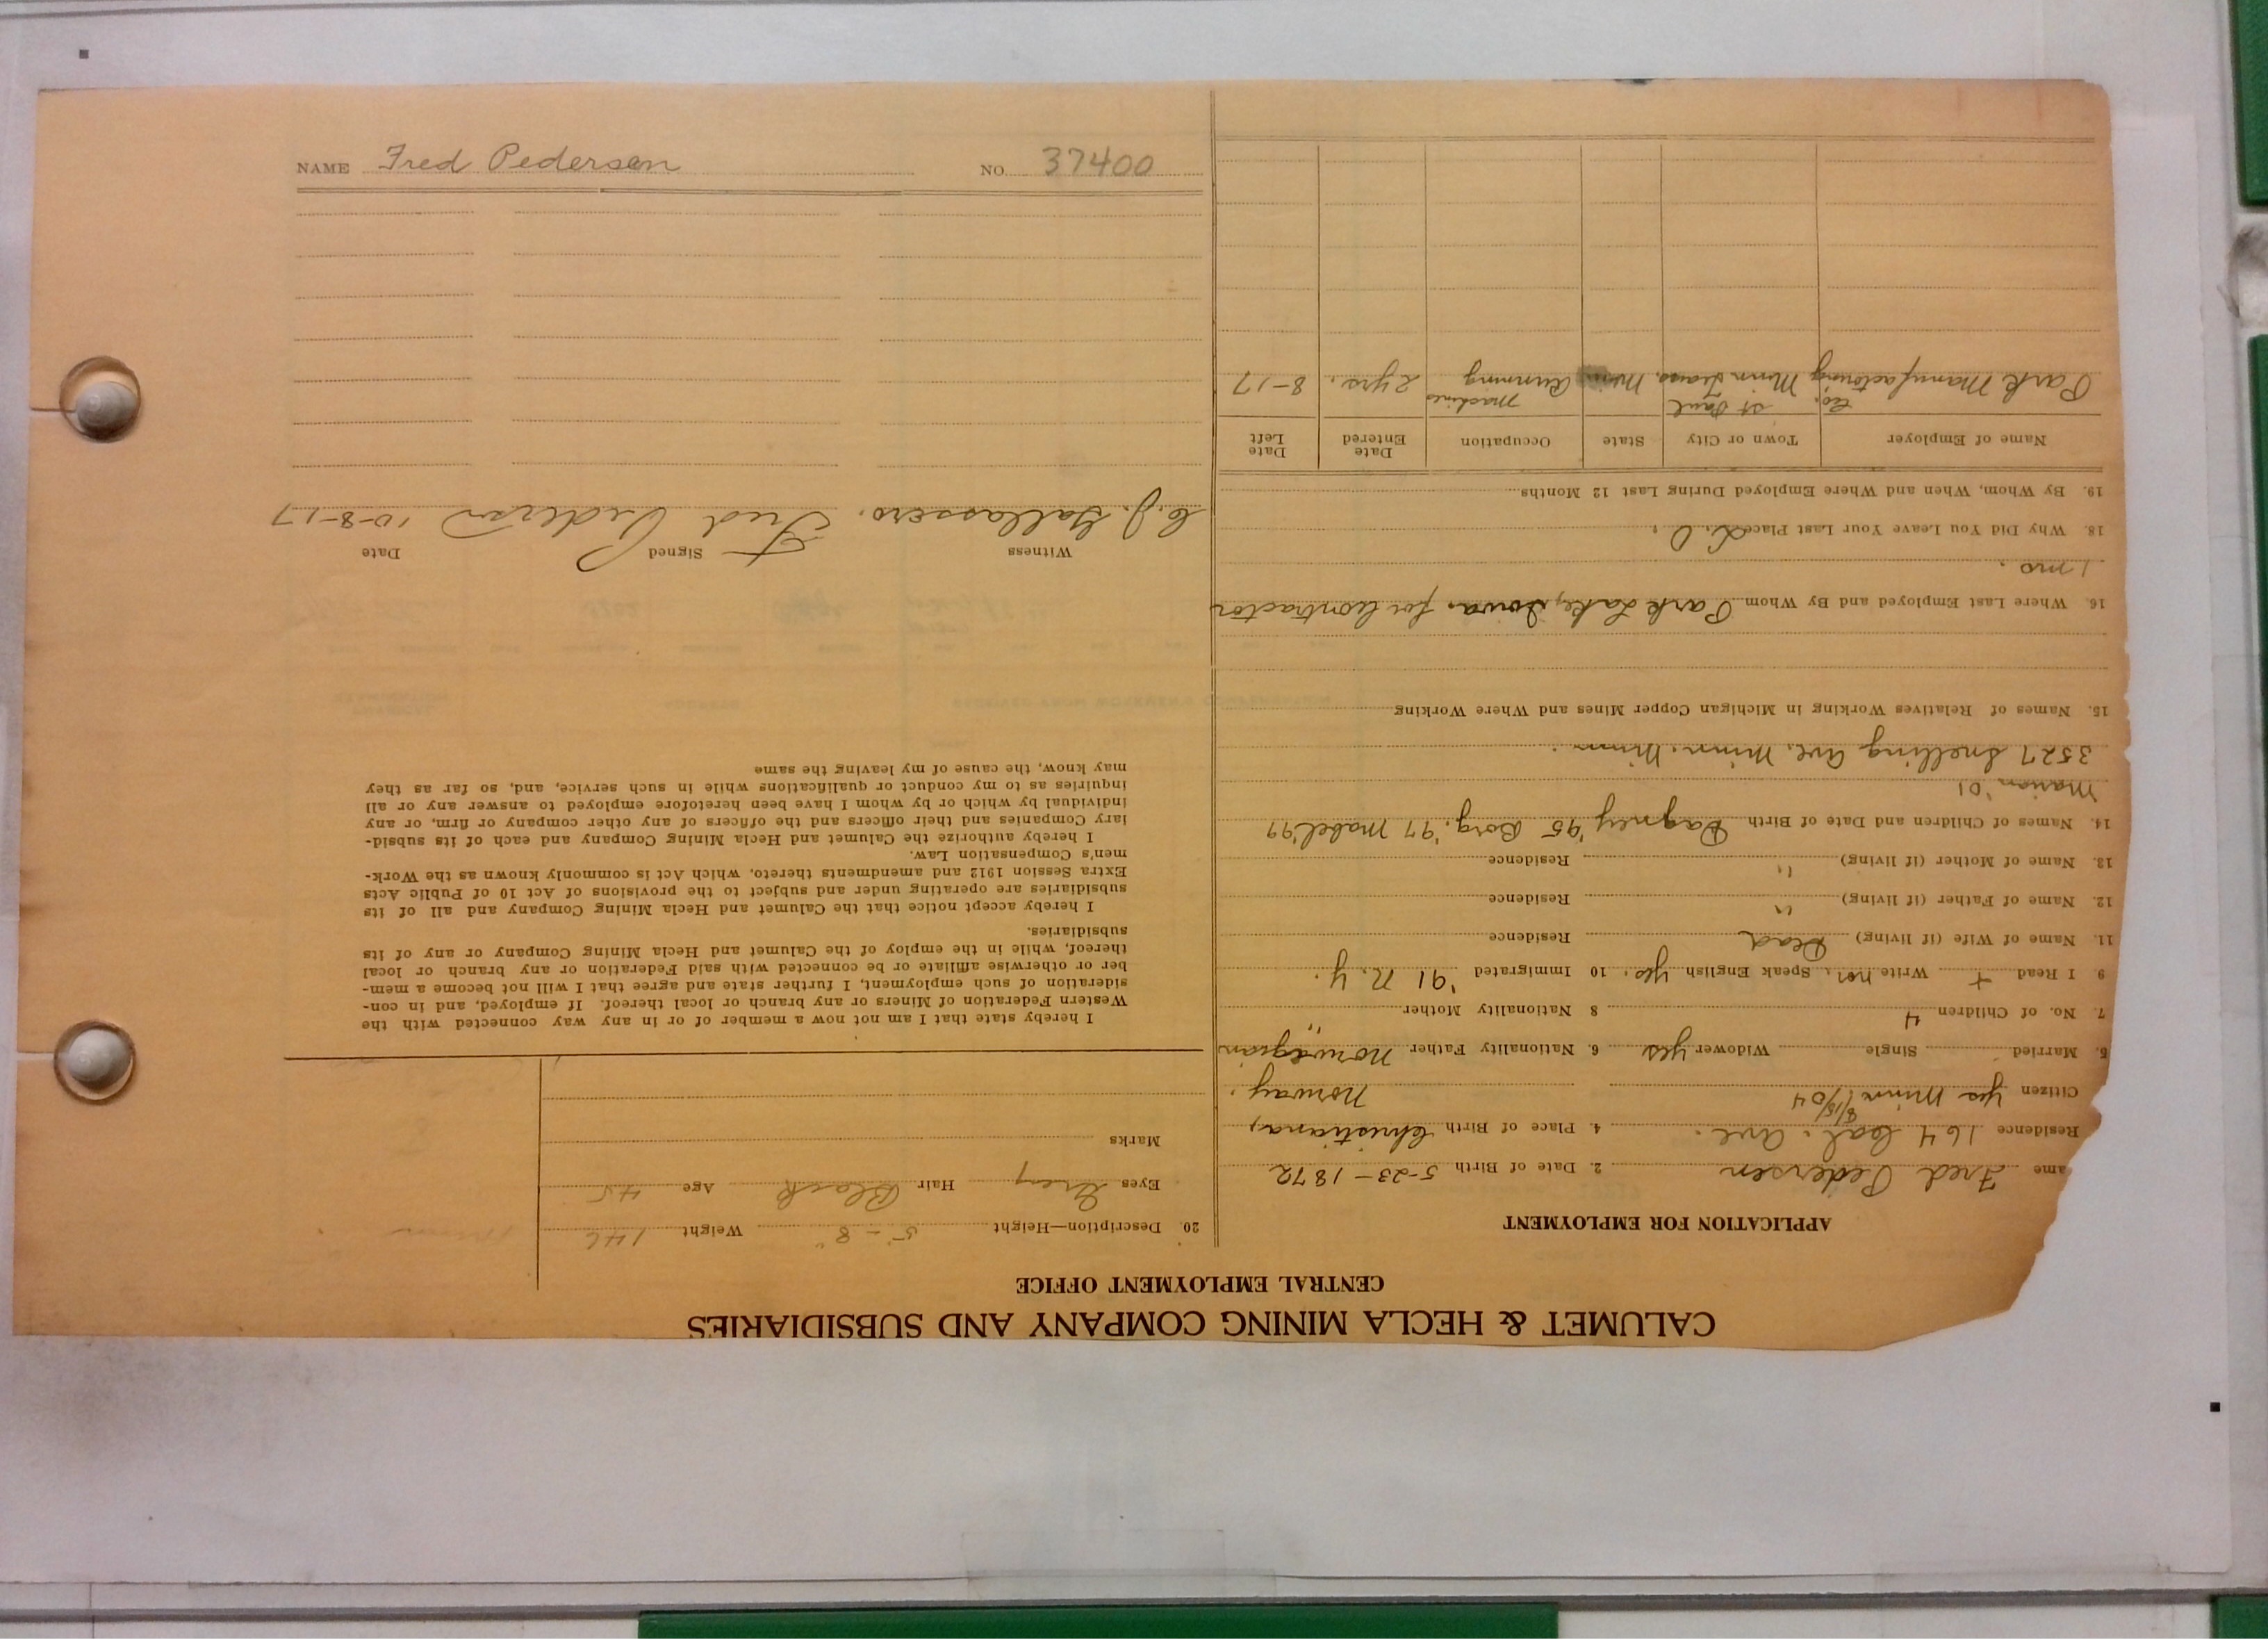 CALUMET & HECLA MINING COMPANY AND SUBSIDIARIES
CENTRAL EMPLOYMENT OFFICE
APPLICATION FOR EMPLOYMENT
ame Fred Pedersen 2. Date of Birth 5-23-1872
Residence 164 Cal. Ave. 4. Place of Birth Christiana,
Citizen Yes Minn 8/15/04 Norway.
5. Married Single Widower yes 6. Nationality Father Norwegian
7. No. of Children 4 8 Nationality Mother "
9 I Read + Write nor. Speak English yes. 10 Immigrated '91 N.Y.
11. Name of Wife (if living) Dead Residence
12. Name of Father (if living) " Residence
13. Name of Mother (if living) " Residence
14. Names of Children and Date of Birth Dagney '95 Borg. '97 Mabel '99
Marion '01
3527 Snelling Ave. Minn. Minn.
15. Names of Relatives Working in Michigan Copper Mines and Where Working
16. Where Last Employed and By Whom Park Lake, Iowa. for Contractor
1 mo.
18. Why Did You Leave Your Last Place L.O.
19. By Whom, When and Where Employed During Last 12 Months
Name of Employer Town or City State Occupation Date Entered Date Left
Park Manufactoring Co. St Paul Minn Trans. Minn Running Machines 2 yrs. 8-17
20. Description—Height 5'-8" Weight 146
Eyes Grey Hair Black Age 45
Marks
I hereby state that I am not now a member of or in any way connected with the
Western Federation of Miners or any branch or local thereof. If employed, and in con-
sideration of such employment, I further state and agree that I will not become a mem-
ber or otherwise affiliate or be connected with said Federation or any branch or local
thereof, while in the employ of the Calumet and Hecla Mining Company or any of its
subsidiaries.
I hereby accept notice that the Calumet and Hecla Mining Company and all of its
subsidiaries are operating under and subject to the provisions of Act 10 of Public Acts
Extra Session 1912 and amendments thereto, which Act is commonly known as the Work-
men's Compensation Law.
I hereby authorize the Calumet and Hecla Mining Company and each of its subsid-
iary Companies and their officers and the officers of any other company or firm, or any
individual by which or by whom I have been heretofore employed to answer any or all
inquiries as to my conduct or qualifications while in such service, and, so far as they
may know, the cause of my leaving the same
Witness Signed Date
C.J. Gallassero. Fred Pederson 10-8-17
NAME Fred Pedersen NO. 37400